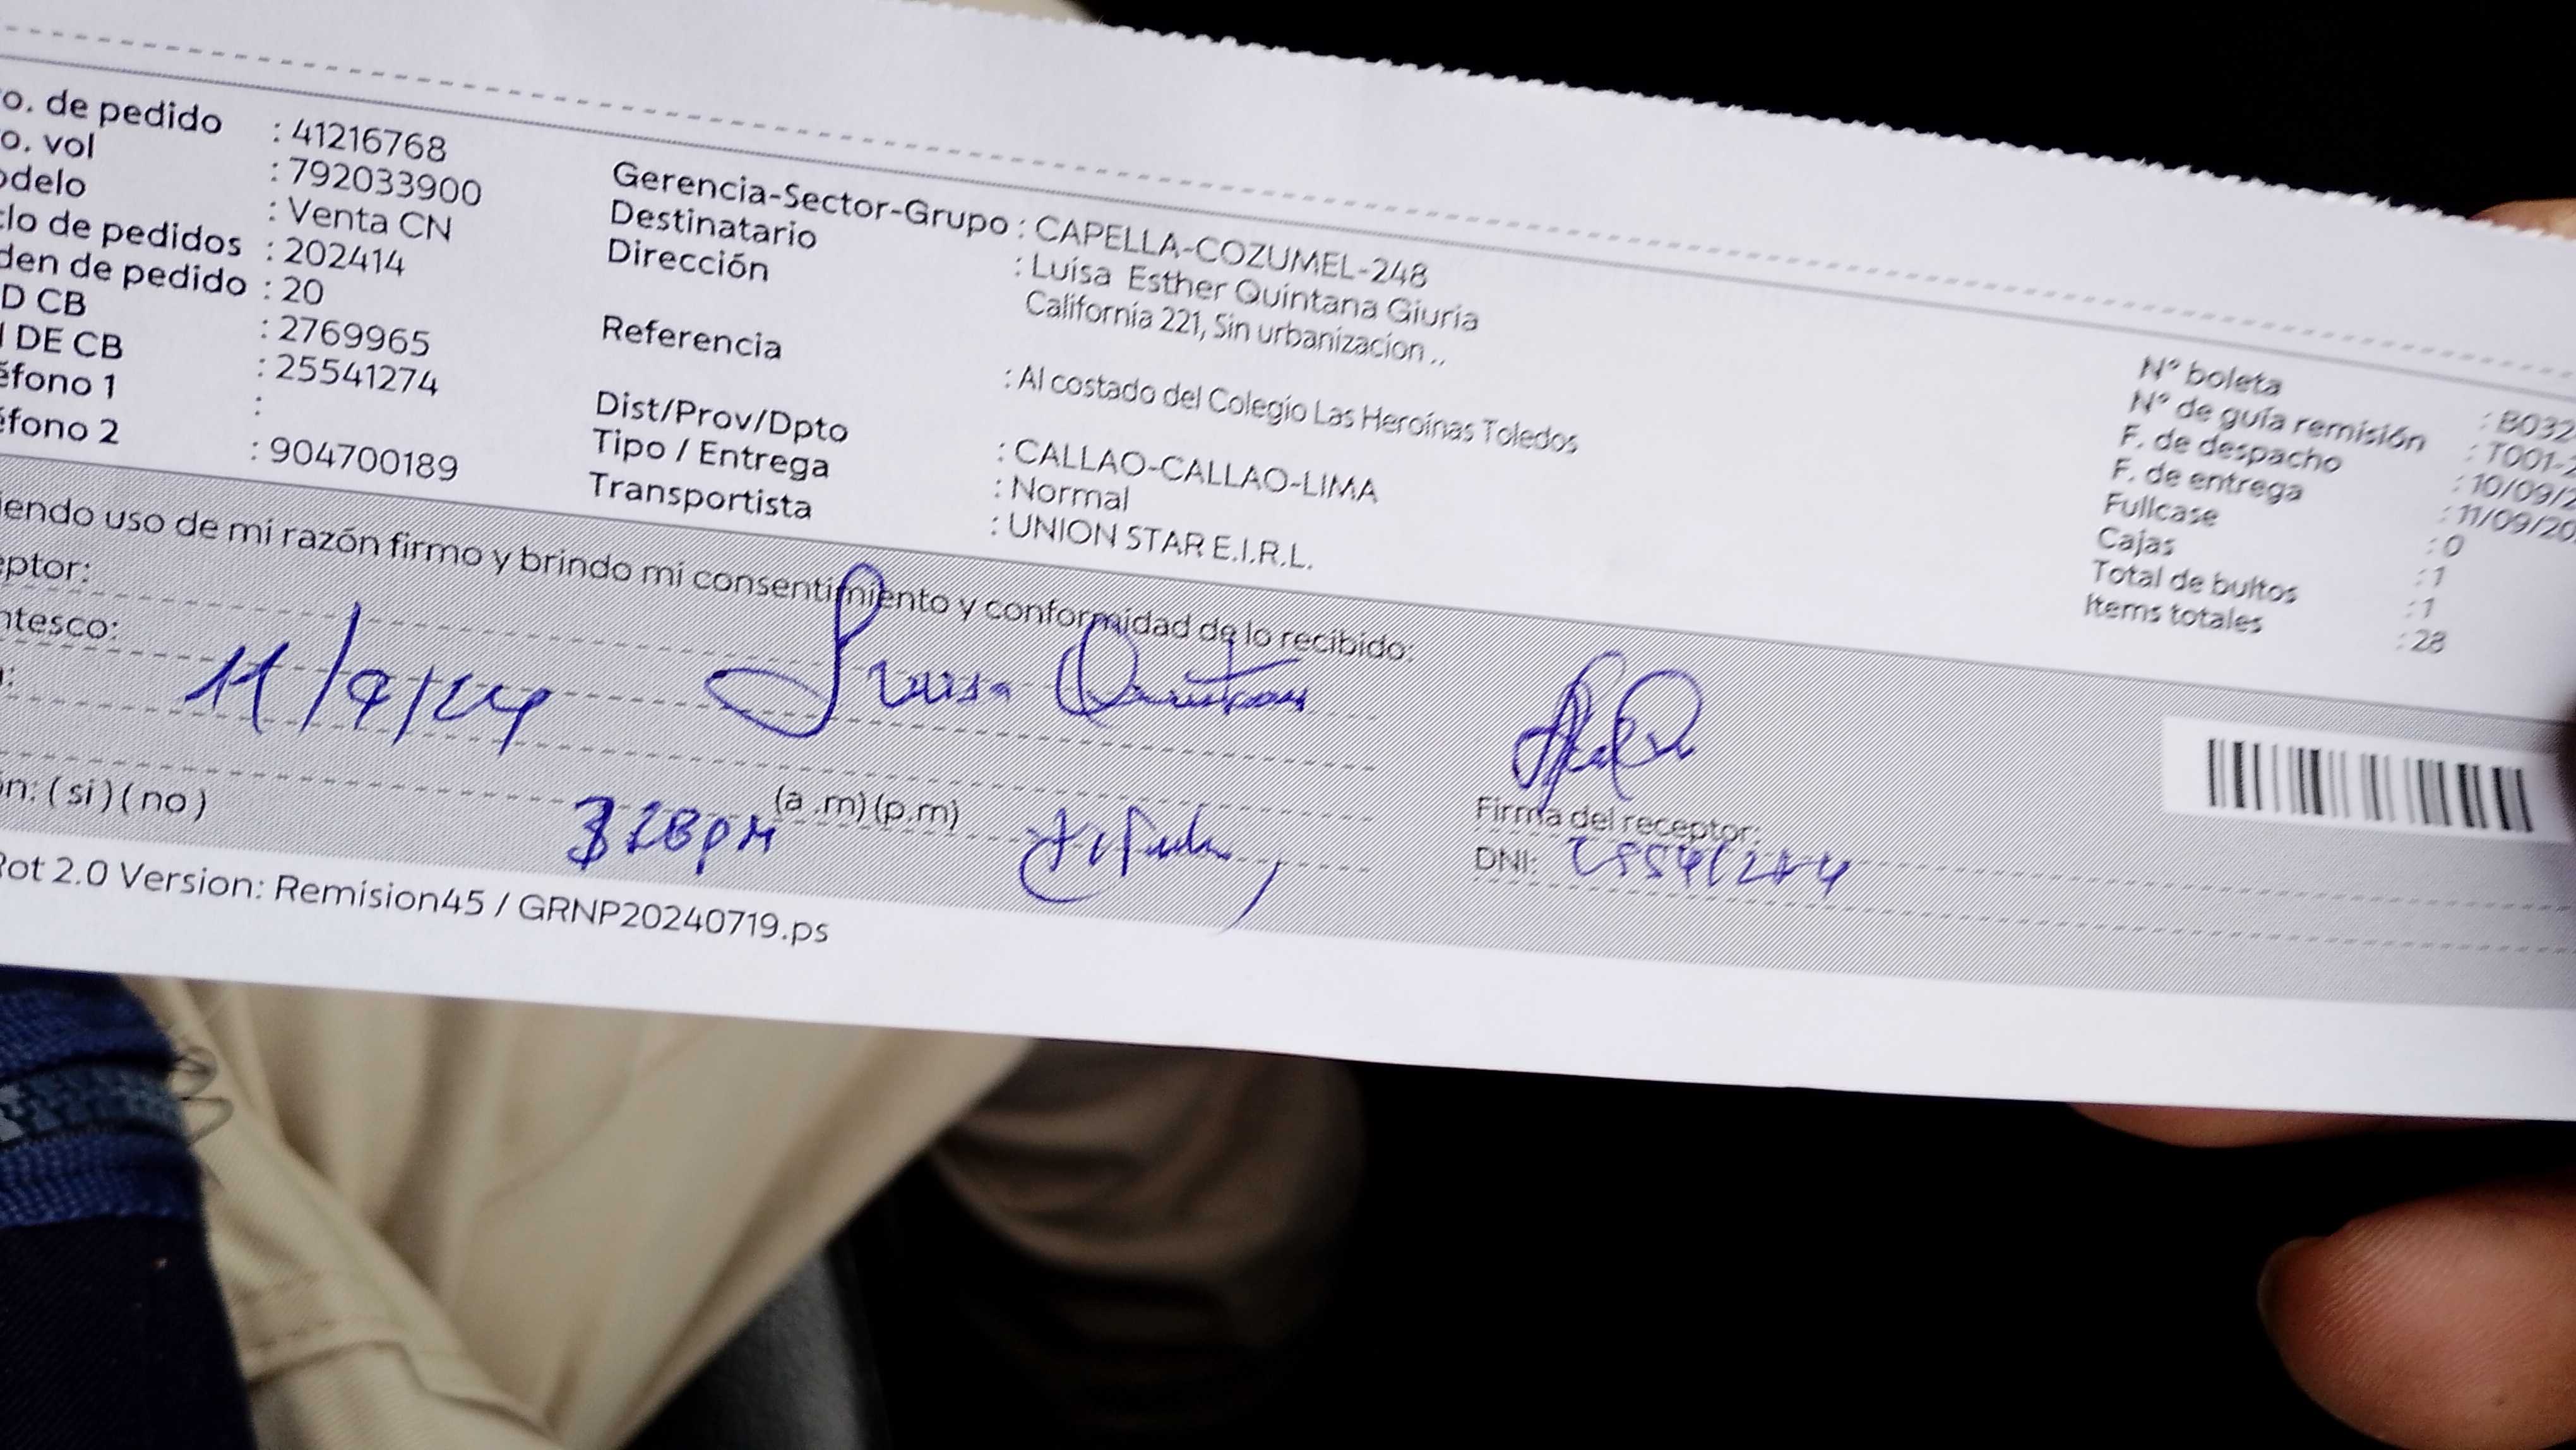 o. de pedido : 41216768
o. vol : 792033900
odelo : Venta CN
clo de pedidos : 202414
den de pedido : 20
D CB : 2769965
I DE CB : 25541274
éfono 1 :
éfono 2 : 904700189
Gerencia-Sector-Grupo : CAPELLA-COZUMEL-248
Destinatario : Luisa Esther Quintana Giuria
Dirección California 221, Sin urbanizacion ..
Referencia : Al costado del Colegio Las Heroínas Toledos
Dist/Prov/Dpto : CALLAO-CALLAO-LIMA
Tipo / Entrega : Normal
Transportista : UNION STAR E.I.R.L.
N° boleta : B032
N° de guía remisión : T001-2
F. de despacho : 10/09/2
F. de entrega : 11/09/20
Fullcase : 0
Cajas : 1
Total de bultos : 1
Items totales : 28
iendo uso de mi razón firmo y brindo mi consentimiento y conformidad de lo recibido:
eptor:
ntesco:
11/9/24 Luisa Quintana
ón: ( si ) ( no ) (a .m) (p.m)
3 28 pm
Firma del receptor:
DNI: 25541274
Rot 2.0 Version: Remision45 / GRNP20240719.ps